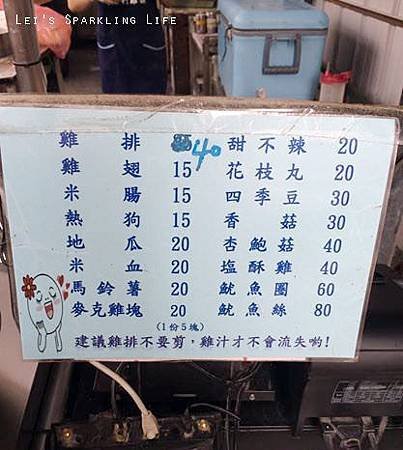 LEI'S SPARKLING LIFE
雞排 40 甜不辣 20
雞翅 15 花枝丸 20
米腸 15 四季豆 30
熱狗 15 香菇 30
地瓜 20 杏鮑菇 40
米血 20 塩酥雞 40
馬鈴薯 20 魷魚圈 60
麥克雞塊 20 魷魚絲 80
(1份5塊)
建議雞排不要剪,雞汁才不會流失喲!